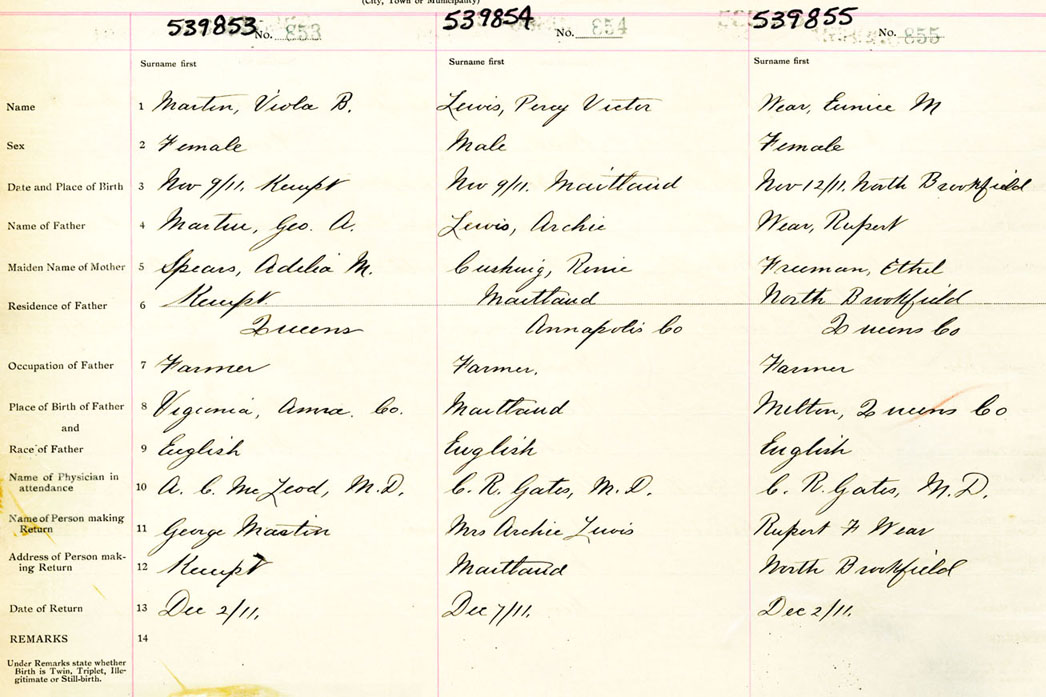 (City, Town or Municipality)
539853 No. 853 539854 No. 854 539855 No. 855
Surname first Surname first Surname first
Name 1 Martin, Viola B. Lewis, Percy Victor Wear, Eunice M
Sex 2 Female Male Female
Date and Place of Birth 3 Nov 9/11. Kempt Nov 9/11. Maitland Nov 12/11. North Brookfield
Name of Father 4 Martin, Geo. A. Lewis, Archie Wear, Rupert
Maiden Name of Mother 5 Spears, Adelia M. Cushing, Freeman, Ethel
Residence of Father 6 Kempt. Maitland North Brookfield
Queens Annapolis Co Queens Co
Occupation of Father 7 Farmer Farmer. Farmer
Place of Birth of Father 8 Virginia, Anna. Co. Maitland Milton, Queens Co
and
Race of Father 9 English English English
Name of Physician in
attendance 10 A. C. McLeod, M.D. C. R. Gates, M.D. C. R. Gates, M.D.
Name of Person making
Return 11 George Martin Mrs Archie Lewis Rupert F Wear
Address of Person mak-
ing Return 12 Kempt Maitland North Brookfield
Date of Return 13 Dec 2/11. Dec 7/11. Dec 2/11.
REMARKS 14
Under Remarks state whether
Birth is Twin, Triplet, Ille-
gitimate or Still-birth.